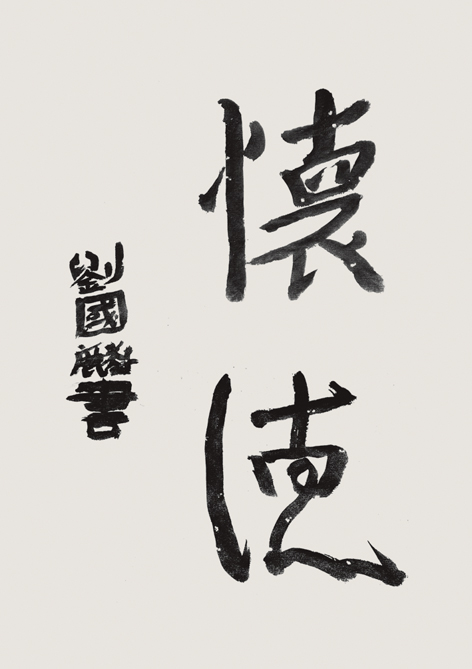 懷德
劉國麟書